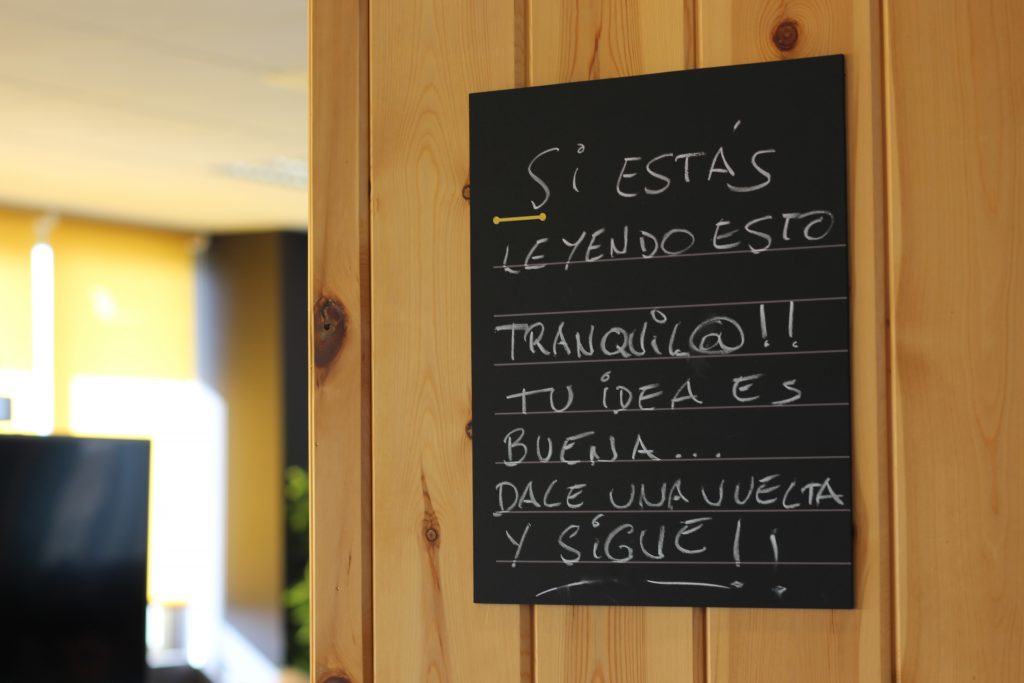 Si ESTÁS
LEYENDO ESTO
TRANQUiL@!!
TU iDEA ES
BUENA...
DALE UNA VUELTA
Y SiGUE!!